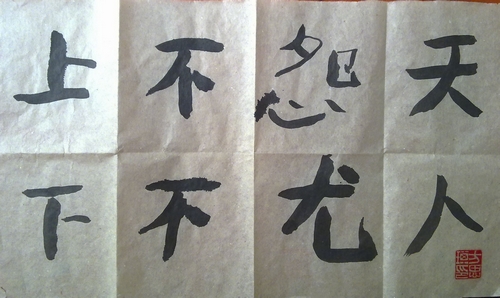 上不怨天
下不尤人